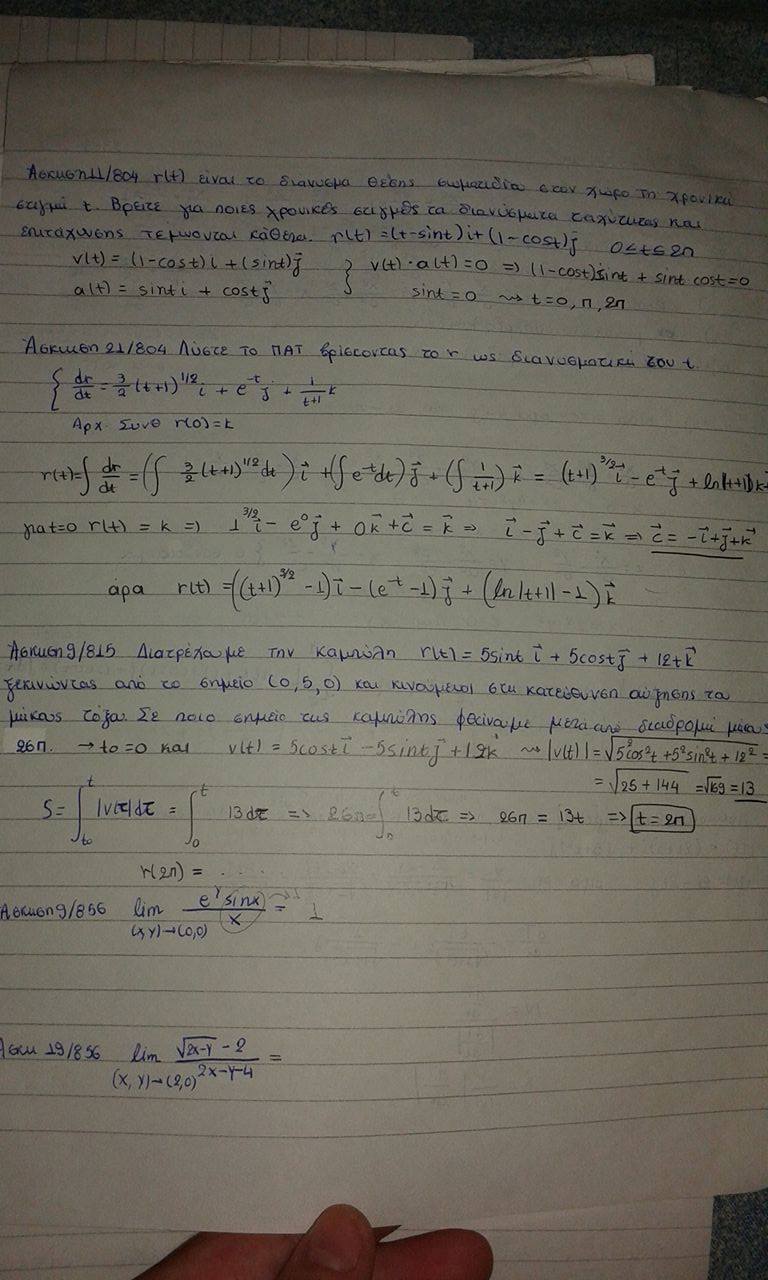 Άσκηση 11/804 r(t) είναι το διάνυσμα θέσης σωματιδίου στον χώρο τη χρονική
στιγμή t. Βρείτε για ποιες χρονικές στιγμές τα διανύσματα ταχύτητας και
επιτάχυνσης τέμνονται κάθετα. r(t) = (t-sint)i + (1-cost)j 0≤t≤2π
v(t) = (1-cost)i + (sint)j } v(t)·a(t)=0 => (1-cost)sint + sint cost=0
a(t) = sint i + cost j sint=0 ⇝ t=0, π, 2π
Άσκηση 21/804 Λύστε το ΠΑΤ βρίσκοντας το r ως διανυσματική του t.
{ dr/dt = 3/2 (t+1)^1/2 i + e^-t j + 1/(t+1) k
Αρχ. Συνθ r(0)=k
r(t)=∫ dr/dt = (∫ 3/2 (t+1)^1/2 dt) i + (∫e^-t dt) j + (∫ 1/(t+1)) k = (t+1)^3/2 i - e^-t j + ln|t+1| k
για t=0 r(t) = k => 1^3/2 i - e^0 j + 0k + c = k => i - j + c = k => c = -i+j+k
άρα r(t) = ((t+1)^3/2 -1) i - (e^-t -1) j + (ln|t+1| -1) k
Άσκηση 9/815 Διατρέχουμε την καμπύλη r(t) = 5sint i + 5cost j + 12t k
ξεκινώντας από το σημείο (0,5,0) και κινούμενοι στη κατεύθυνση αύξησης του
μήκους τόξου. Σε ποιο σημείο της καμπύλης φθάνουμε μετά από διαδρομή μήκους
26π. → to=0 και v(t) = 5cost i - 5sint j + 12k ⇝ |v(t)| = √5²cos²t + 5²sin²t + 12² =
= √25 + 144 = √169 = 13
S = ∫_to^t |v(τ)|dτ = ∫_0^t 13dτ => 26π = ∫_0^t 13dτ => 26π = 13t => t = 2π
r(2π) = . . . .
Άσκηση 9/856 lim (x,y)→(0,0) e^y sinx / x →1 = 1
Άσκ 19/856 lim (x,y)→(2,0) √2x-y - 2 / 2x-y-4 =